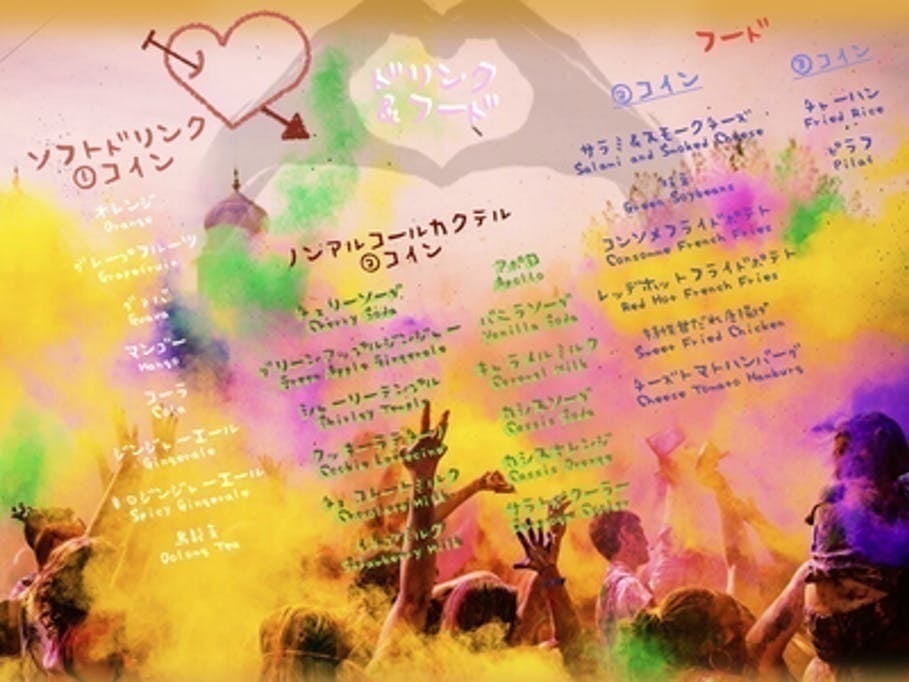 ドリンク
&フード
ソフトドリンク
①コイン
オレンジ
Orange
グレープフルーツ
Grapefruit
グァバ
Guava
マンゴー
Mango
コーラ
Cola
ジンジャーエール
Gingerale
辛口ジンジャーエール
Spicy Gingerale
烏龍茶
Oolong Tea
ノンアルコールカクテル
②コイン
チェリーソーダ
Cherry Soda
グリーンアップルジンジャー
Green Apple Gingerale
シャーリーテンプル
Shirley Temple
チョコレートミルク
Chocolate Milk
Strawberry Milk
アポロ
Apollo
バニラソーダ
Vanilla Soda
キャラメルミルク
Caramel Milk
カシスソーダ
Cassis Soda
カシスオレンジ
Cassis Orange
サラトガクーラー
フード
②コイン
サラミ&スモークチーズ
Salami and Smoked Cheese
枝豆
Green Soybeans
コンソメフライドポテト
Consomme French Fries
レッドホットフライドポテト
Red Hot French Fries
特性甘だれ唐揚げ
Sweet Fried Chicken
チーズトマトハンバーグ
Cheese Tomato Hamburg
③コイン
チャーハン
Fried Rice
ピラフ
Pilaf